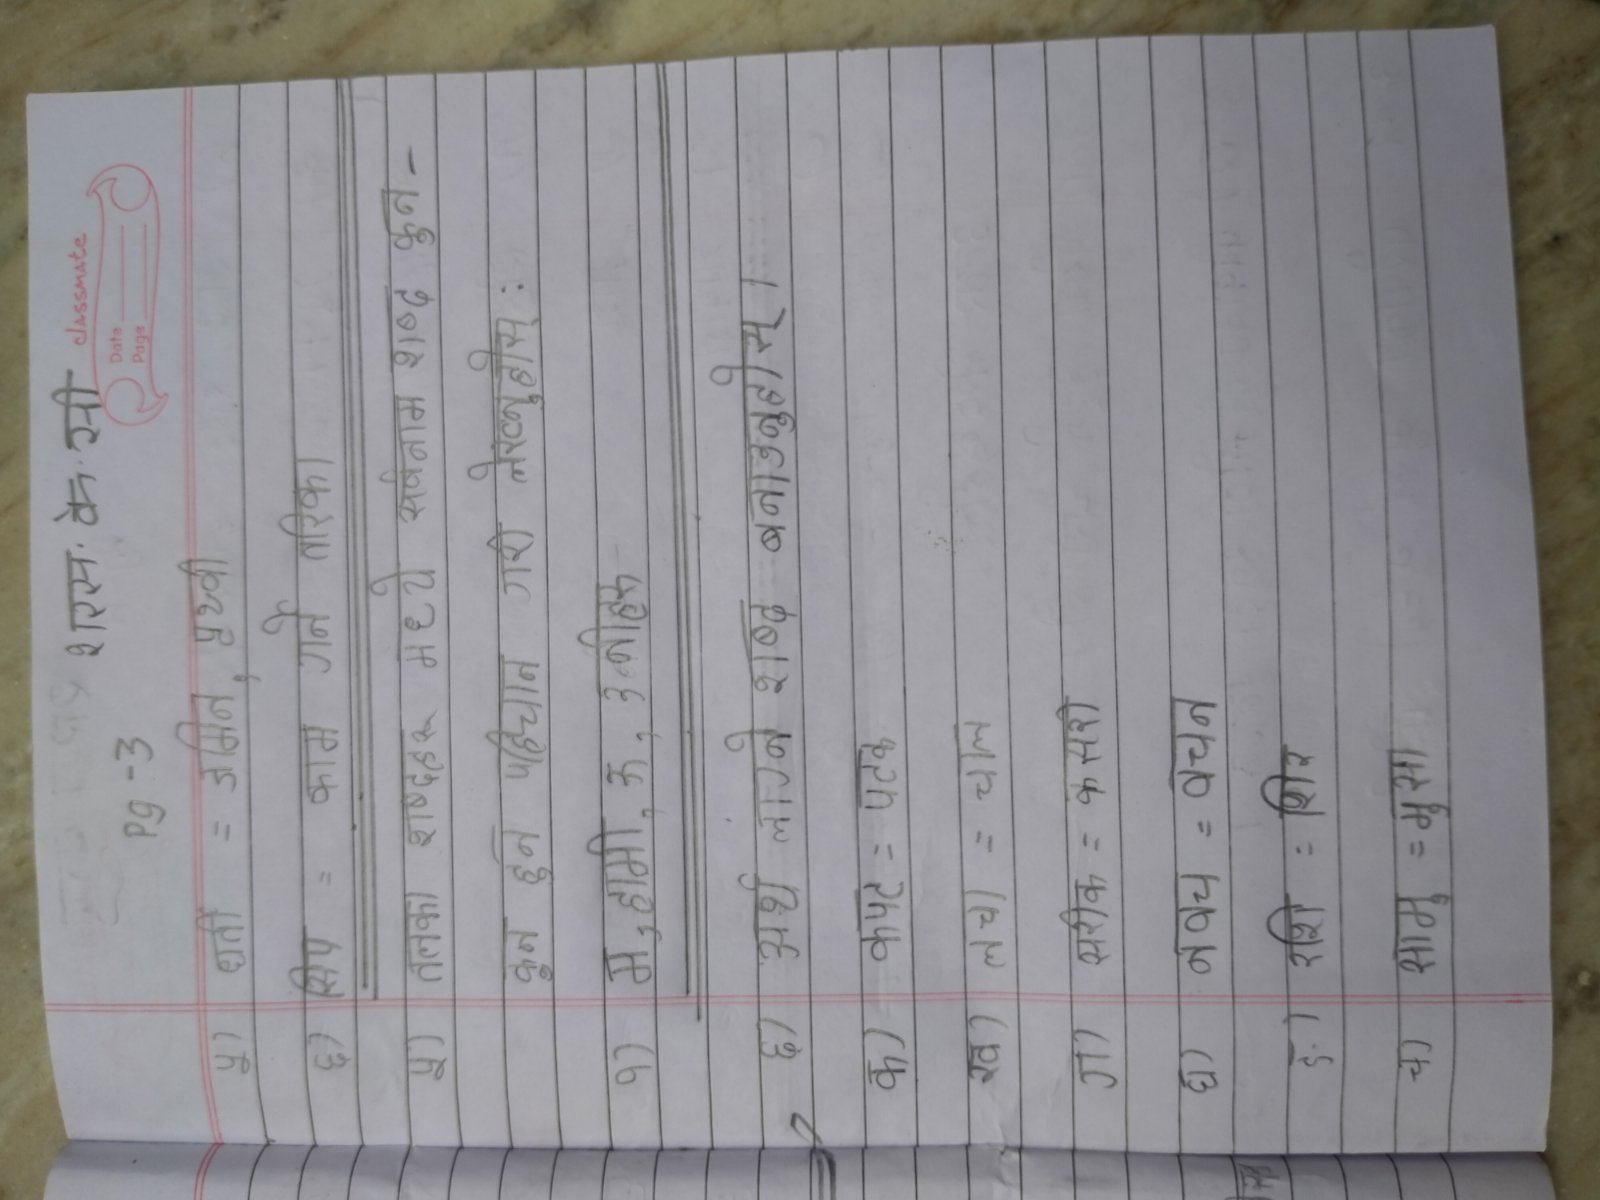 शारस. के. सी
classmate
Date
Page
Pg - 3
५) धर्ती = जमिन, पृथ्वी
६) सिप = काम गर्ने तरिका
५) तलका शब्दहरू मध्ये सर्वनाम शब्द कुन -
कुन हुन पहिचान गरी लेख्नुहोस् :
१) म, हामी, ऊ, उनीहरू
६) अर्थ लाग्ने शब्द बनाउनुहोस् ।
क) कपट = पटक
ख) लचा = चाल
ग) सरीक = कसरी
घ) नवच = वचन
ङ) रशि = शिर
च) सामु = मुसा